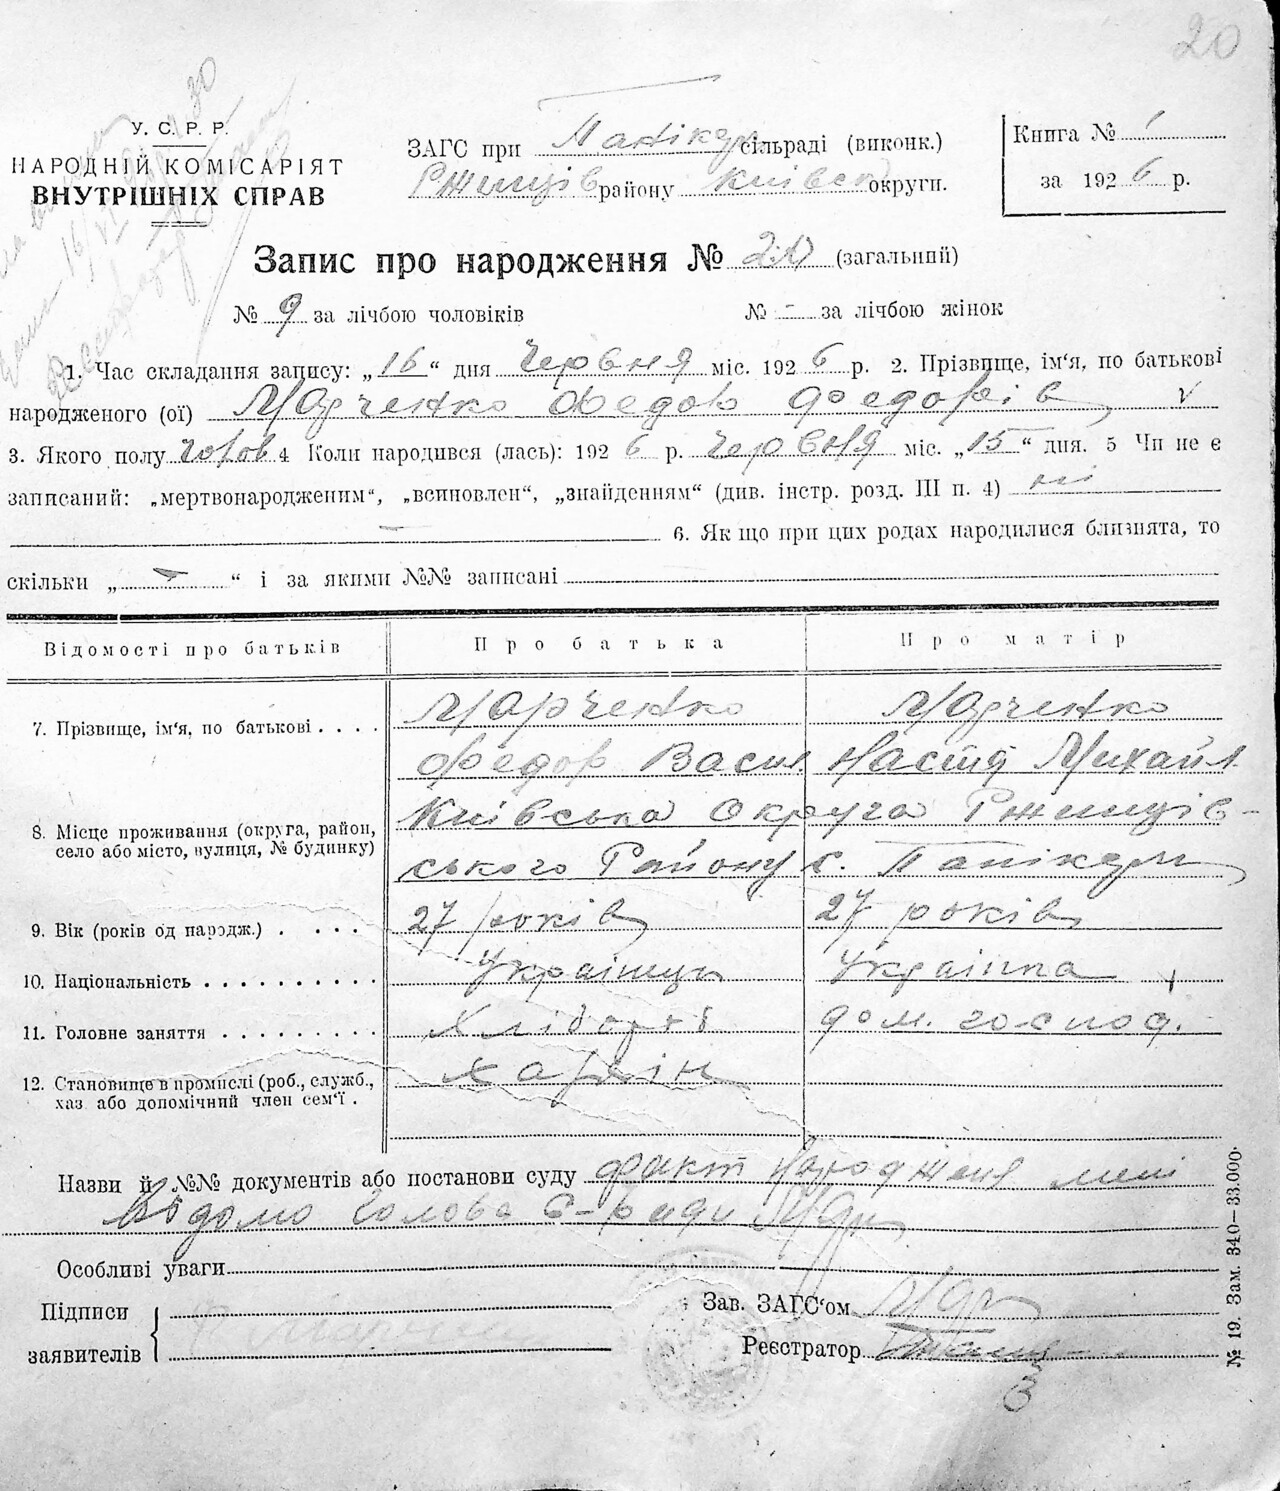 20
У. С. Р. Р.
НАРОДНІЙ КОМІСАРІЯТ
ВНУТРІШНІХ СПРАВ
ЗАГС при Панікар сільраді (виконк.)
Ржищів району Київськ округи.
Книга № 1
за 1926 р.
Запис про народження № 20 (загальний)
№ 9 за лічбою чоловіків № - за лічбою жінок
1. Час складання запису: „16“ дня Червня міс. 1926 р. 2. Прізвище, ім'я, по батькові
народженого (ої) Марченко Федор Федорів
3. Якого полу чолов 4 Коли народився (лась): 1926 р. Червня міс. „15“ дня. 5 Чи не є
записаний: „мертвонародженим“, „всиновлен“, „знайденням“ (див. інстр. розд. III п. 4) ні
— 6. Як що при цих родах народилися близнята, то
скільки „ — “ і за якими №№ записані
Відомості про батьків Про батька Про матір
7. Прізвище, ім'я, по батькові . . . . Марченко Марченко
Федор Васил Настя Михайл
8. Місце проживання (округа, район, село або місто, вулиця, № будинку) Київська Округа Ржищів-
ського Району с. Панікари
9. Вік (років од народж.) . . . . 27 років 27 років
10. Національність . . . . . . . . . . Українць Украінка
11. Головне заняття . . . . . . . . . Хлібороб дом. господ.
12. Становище в промислі (роб., служб.,
хаз. або допомічний член сем'ї . Хазяін
Назви й №№ документів або постанови суду факт народженя мені
відомо Голова С-ради
Особливі уваги
Підписи
заявителів
Зав. ЗАГС'ом
Реєстратор
№ 19. Зам. 340—33.000.